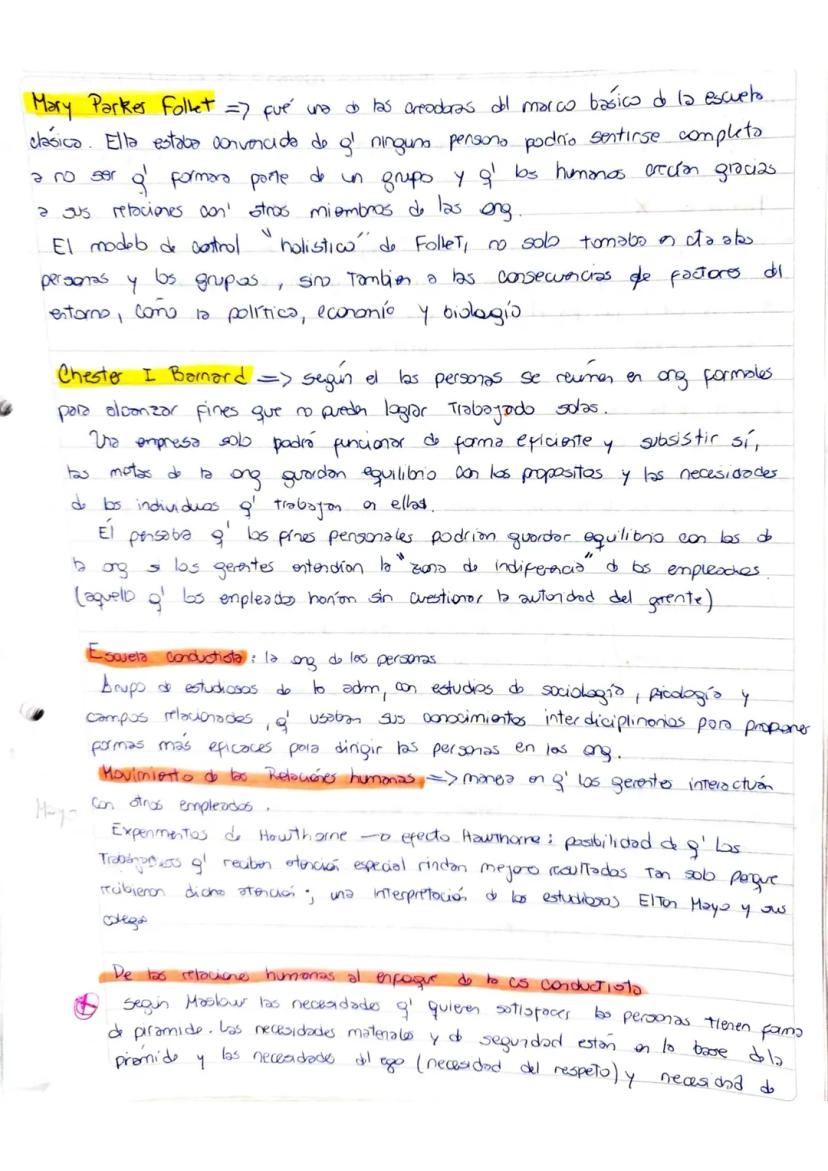 Mary Parker Follet => fué una d las creadoras dl marco básico d la escuela
clásica. Ella estaba convencida de q' ninguna persona podría sentirse completa
a no ser q' formara parte de un grupo y q' los humanos crecían gracias
a sus relaciones con otros miembros de las org.
El modelo de control "holístico" de Follet, no solo tomaba en cta a las
personas y los grupos, sino también a las consecuencias de factores dl
entorno, como la política, economía y biología
Chester I Barnard => según el las personas se reúnen en org formales
para alcanzar fines que no pueden lograr trabajado solas.
Una empresa solo podrá funcionar de forma eficiente y subsistir sí,
las metas de la org guardan equilibrio con los propositos y las necesidades
d los individuos q' trabajan en ellas.
Él pensaba q' los fines personales podrían guardar equilibrio con los d
la org si los gerentes entendían la "zona de indiferencia" d los empleados.
(aquello q' los empleados harían sin cuestionar la autoridad del gerente)
Escuela conductista: la org de las personas
Grupo de estudiosos de la adm, con estudios de sociología, picología y
campos relacionados, q' usaban sus conocimientos interdiciplinarios para proponer
formas más eficaces para dirigir las personas en las org.
Movimiento de las Relaciones humanas => manera en q' los gerentes interactuán
Mayo con otros empleados.
Experimentos de Howthorne → efecto Hawthorne: posibilidad de q' los
trabajadores q' reciben atención especial rindan mejore resultados tan solo porque
recibieron dicha atención; una interpretación d los estudiosos Elton Mayo y sus
colega
De las relaciones humanas al enfoque de la cs conductista
Según Maslow las necesidades q' quieren satisfacer las personas tienen forma
de piramide. Las necesidades materiales y de seguridad están en la base de la
pirámide y las necesidades dl ego (necesidad del respeto) y necesidad de